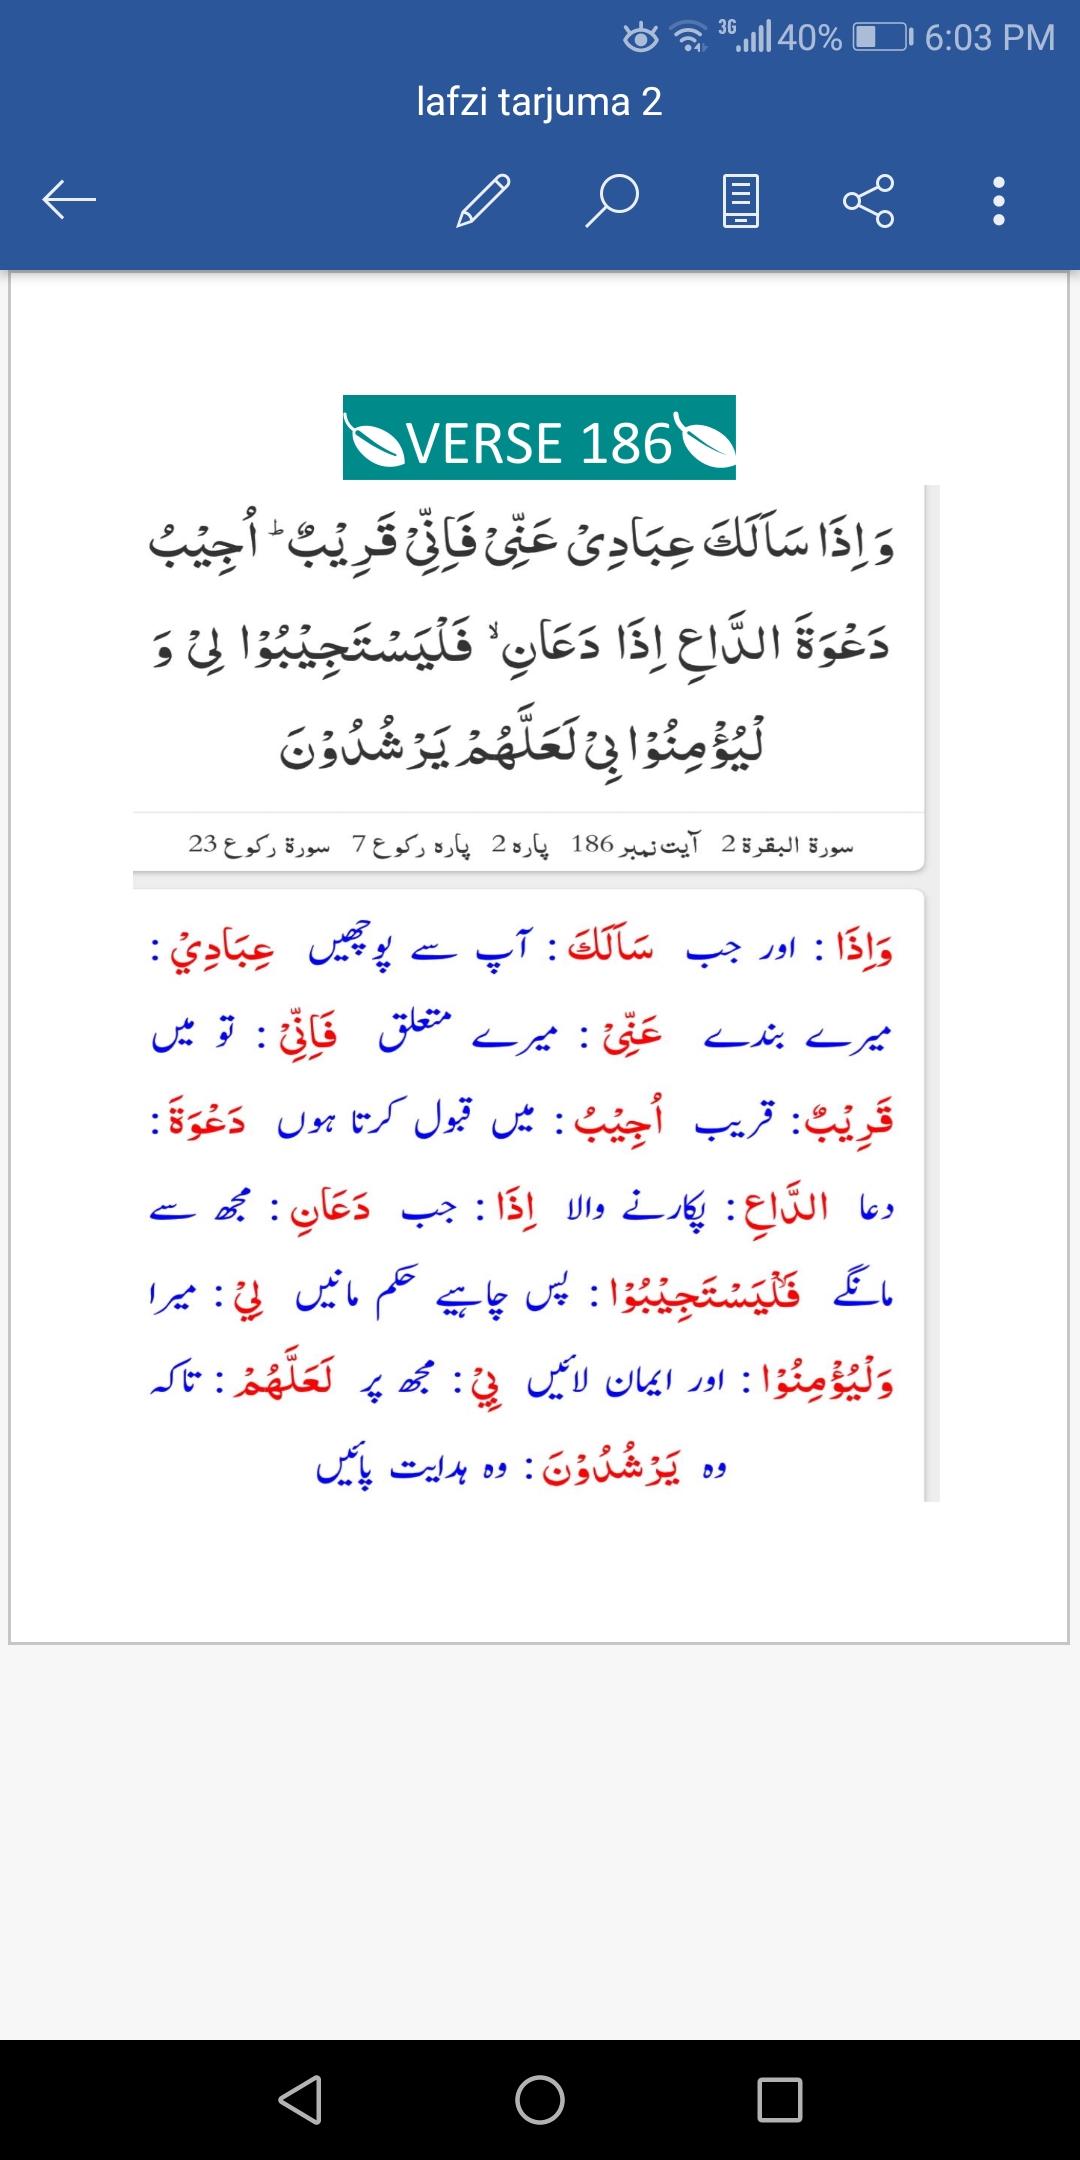 3G 40% 6:03 PM
lafzi tarjuma 2
VERSE 186
وَ اِذَا سَاَلَكَ عِبَادِیْ عَنِّیْ فَاِنِّیْ قَرِیْبٌ ؕ اُجِیْبُ
دَعْوَةَ الدَّاعِ اِذَا دَعَانِ ۙ فَلْیَسْتَجِیْبُوْا لِیْ وَ
لْیُؤْمِنُوْا بِیْ لَعَلَّهُمْ یَرْشُدُوْنَ
سورۃ البقرۃ 2 آیت نمبر 186 پارہ 2 پارہ رکوع 7 سورۃ رکوع 23
وَاِذَا : اور جب سَاَلَكَ : آپ سے پوچھیں عِبَادِيْ :
میرے بندے عَنِّىْ : میرے متعلق فَاِنِّىْ : تو میں
قَرِيْبٌ : قریب اُجِيْبُ : میں قبول کرتا ہوں دَعْوَةَ :
دعا الدَّاعِ : پکارنے والا اِذَا : جب دَعَانِ : مجھ سے
مانگے فَلْيَسْتَجِيْبُوْا : پس چاہیے حکم مانیں لِيْ : میرا
وَلْيُؤْمِنُوْا : اور ایمان لائیں بِيْ : مجھ پر لَعَلَّهُمْ : تاکہ
وہ يَرْشُدُوْنَ : وہ ہدایت پائیں